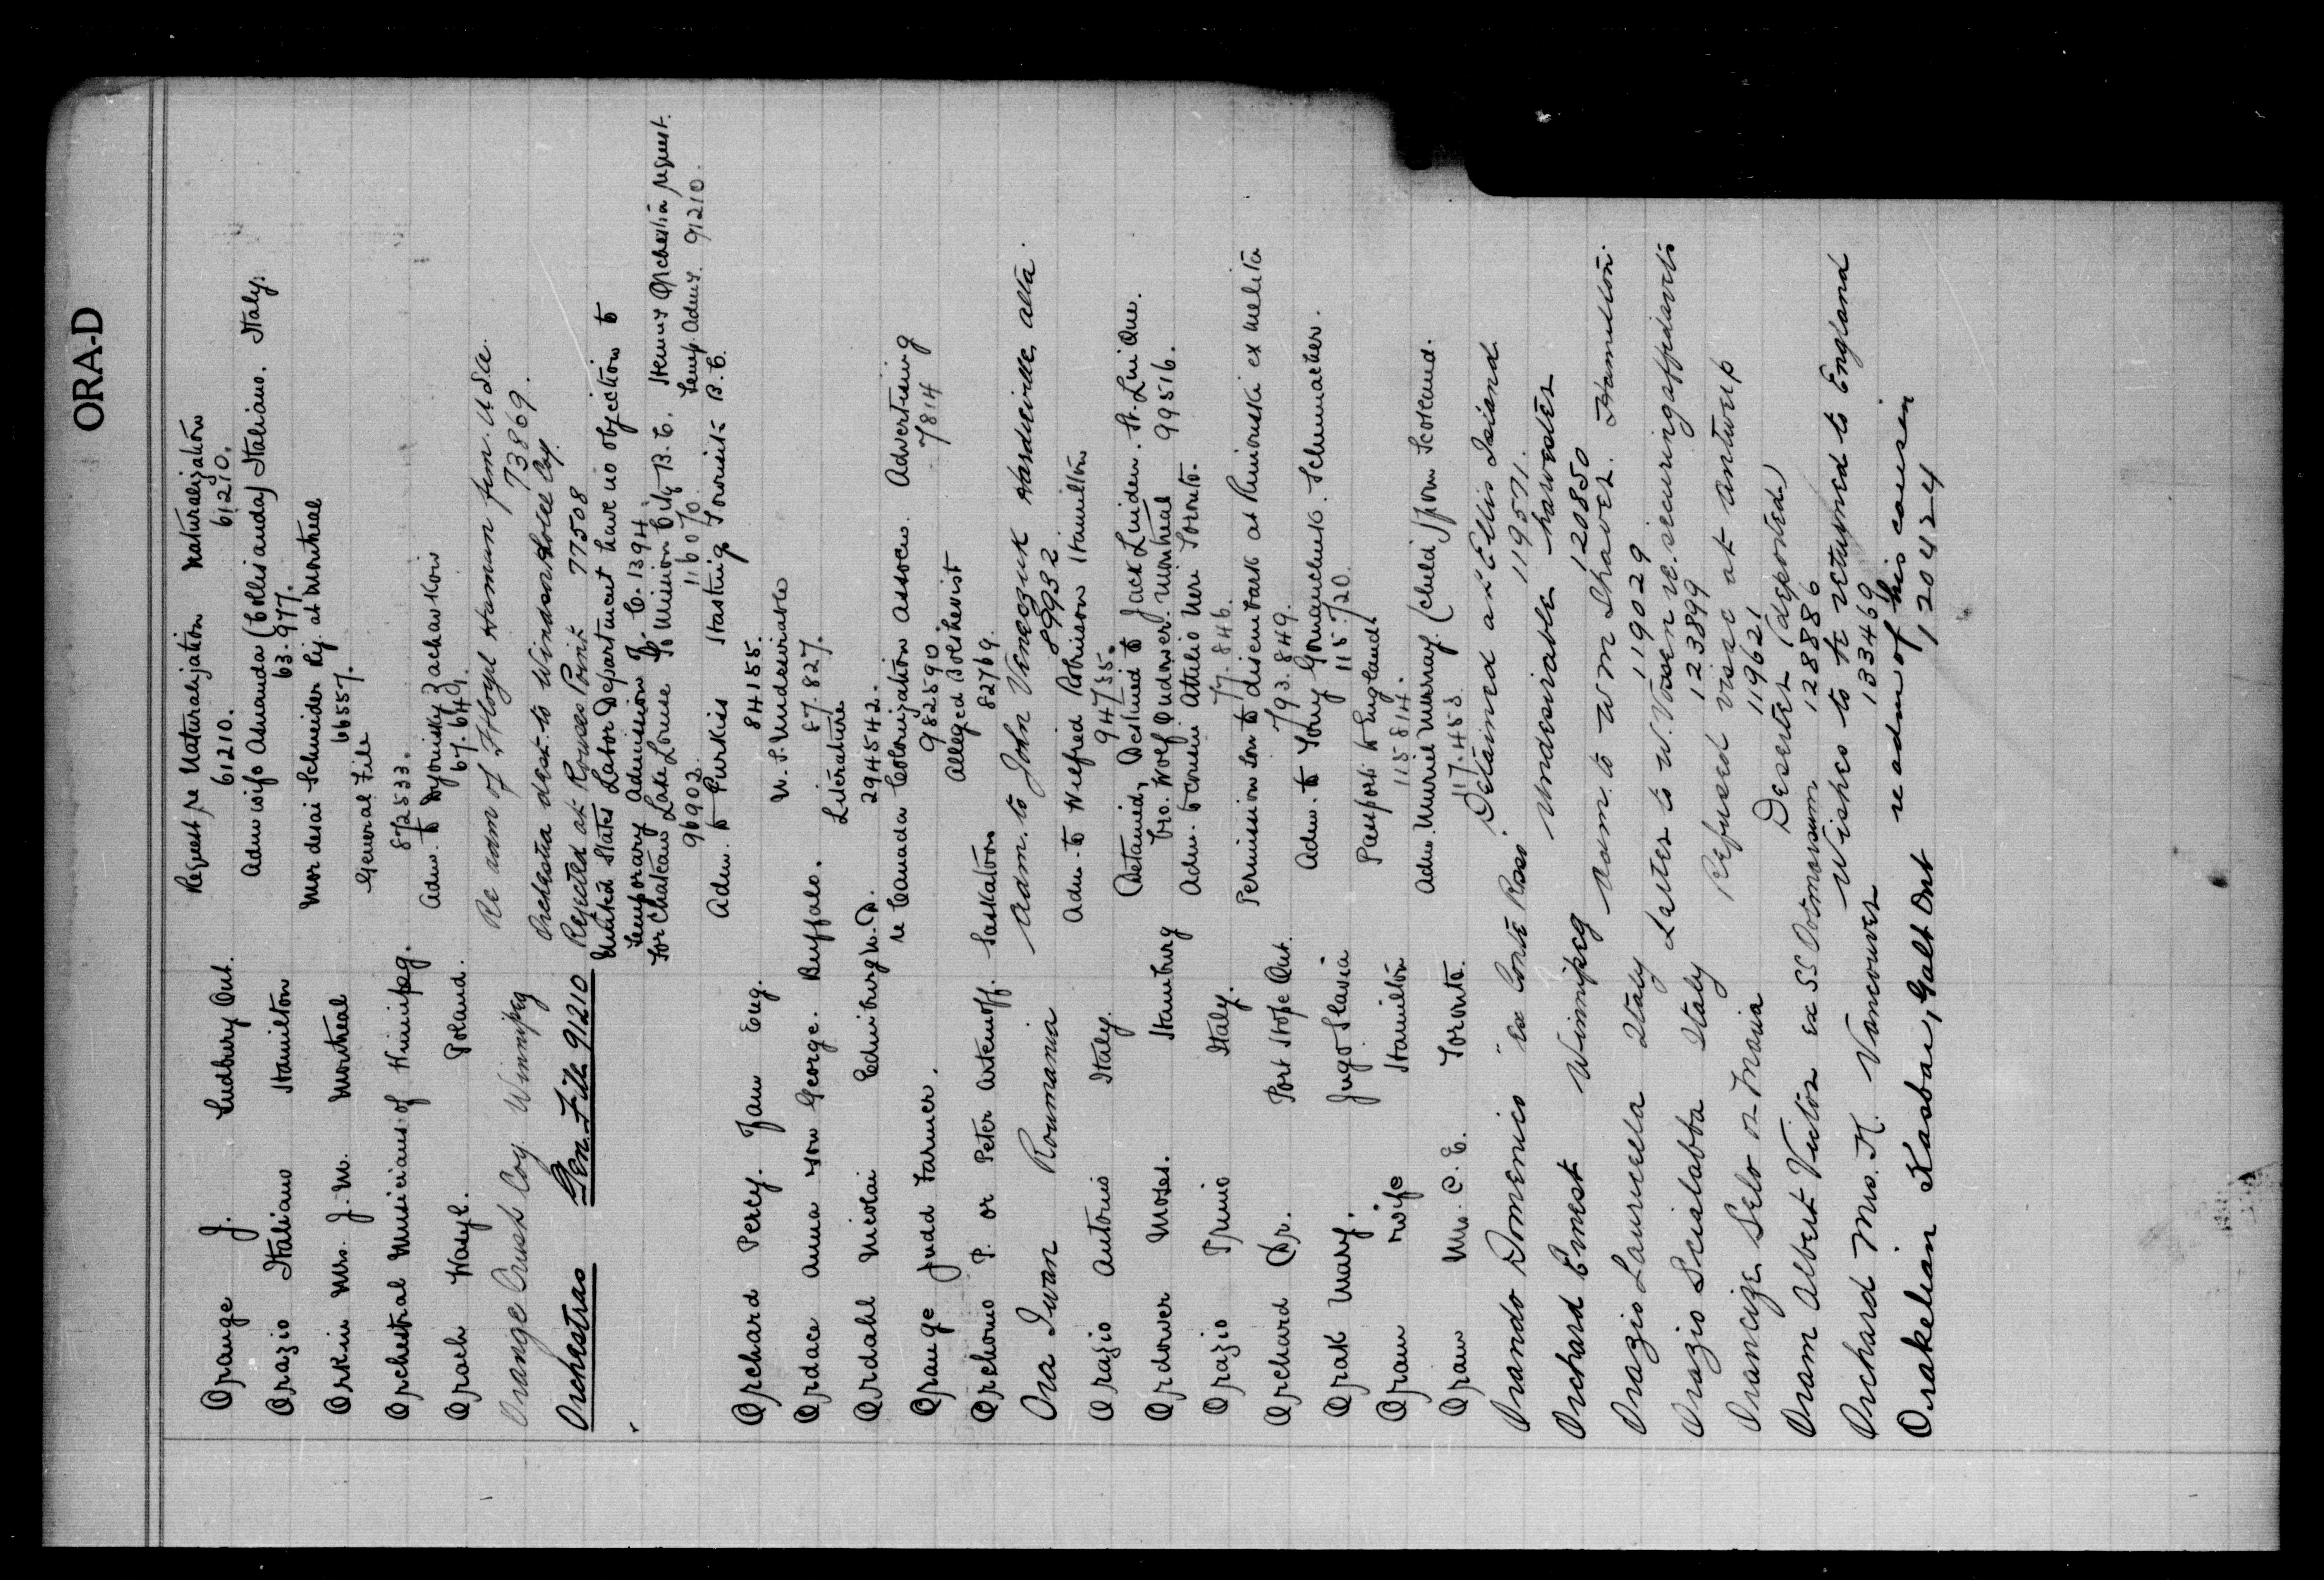 ORA-D
Orange J. Sudbury Ont. Request re Naturalization Naturalization
61210. 61210.
Orazio Italiano Hamilton Adm wife Amanda (Collis anda) Italiano. Italy.
63.977.
Orkin Mrs. J. W. Montreal Mordesai Schneider Rej. at Montreal
66557.
Orchestral Musicians of Winnipeg. General File
872533.
Orach Wasyl. Poland. Adm. to Dyonisky Zacharkow
67.649.
Orange Crush Coy Winnipeg Re adm of Floyd Hamman fm. U.S.a.
73869.
Orchestras Gen. File 91210 Orchestra dest. to Windsor Hotel Coy.
Rejected at Rouses Point 77508
United States Labor Department have no objection to
Temporary Admission of. C.1394.
For Chateau Lake Louise To Mission City B.C. Henry Orchestra request.
96902. 116070. Temp. Admy. 91210.
Orchard Percy. Jam Eng. Adm. to Purkiss Hasting Townsite B.C.
84155.
Ordace Anna von George. Buffalo. U.S. Undesirable
87.827.
Ordahl Nicolai Edinburg N.D. Literature
294542.
Orange Judd Farmer. re Canada Colonization Assocn. Advertising
982590. 7814
Orehono P. or Peter Artenoff. Saskatoon Alleged Bolshevist
82769.
Ora Iwan Roumania Adm. to John Veneszuk Hardieville, Alta.
89932.
Orazio Antonio Italy. Adm. to Wilfred Robinson Hamilton
94755.
Ordower Moses. Hamburg Detained, Destined to Jack Luiden. St. Luni Que.
bro. Wolf Ordower. Montreal 99516.
Orazio Primo Italy. Adm. to Cousin Attilio Neri Toronto.
77.846.
Orchard Dr. Port Hope Ont. Permission to disembark at Rimouski ex Melita
793.849.
Orak Mary. Jugo Slavia Adm. to Tony Gornanchuk. Schumacher.
115.720.
Oram wife Hamilton Passport to England
115814.
Oram Mrs. C. E. Toronto. Adm. Muriel Murray (Child) from Scotland.
117.453.
Orando Domenico "Ex Conte Rosso" Detained at Ellis Island
119571.
Orchard Ernest Winnipeg Undesirable harvester
120850
Orazio Lauricella Italy Adm. to W M Shaver. Hamilton.
119029
Orazio Scialabba Italy Letter to W. Vosen re. securing affidavits
123899
Orancize Selo or Maria Refused visa at Antwerp
119621
Oram Albert Victor ex SS Dotmorum Deserter (deported)
128886
Orchard Mrs. H. Vancouver Wishes to be returned to England
133469
Orakelian Kasbar, Galt Ont re adm of his cousin
120424